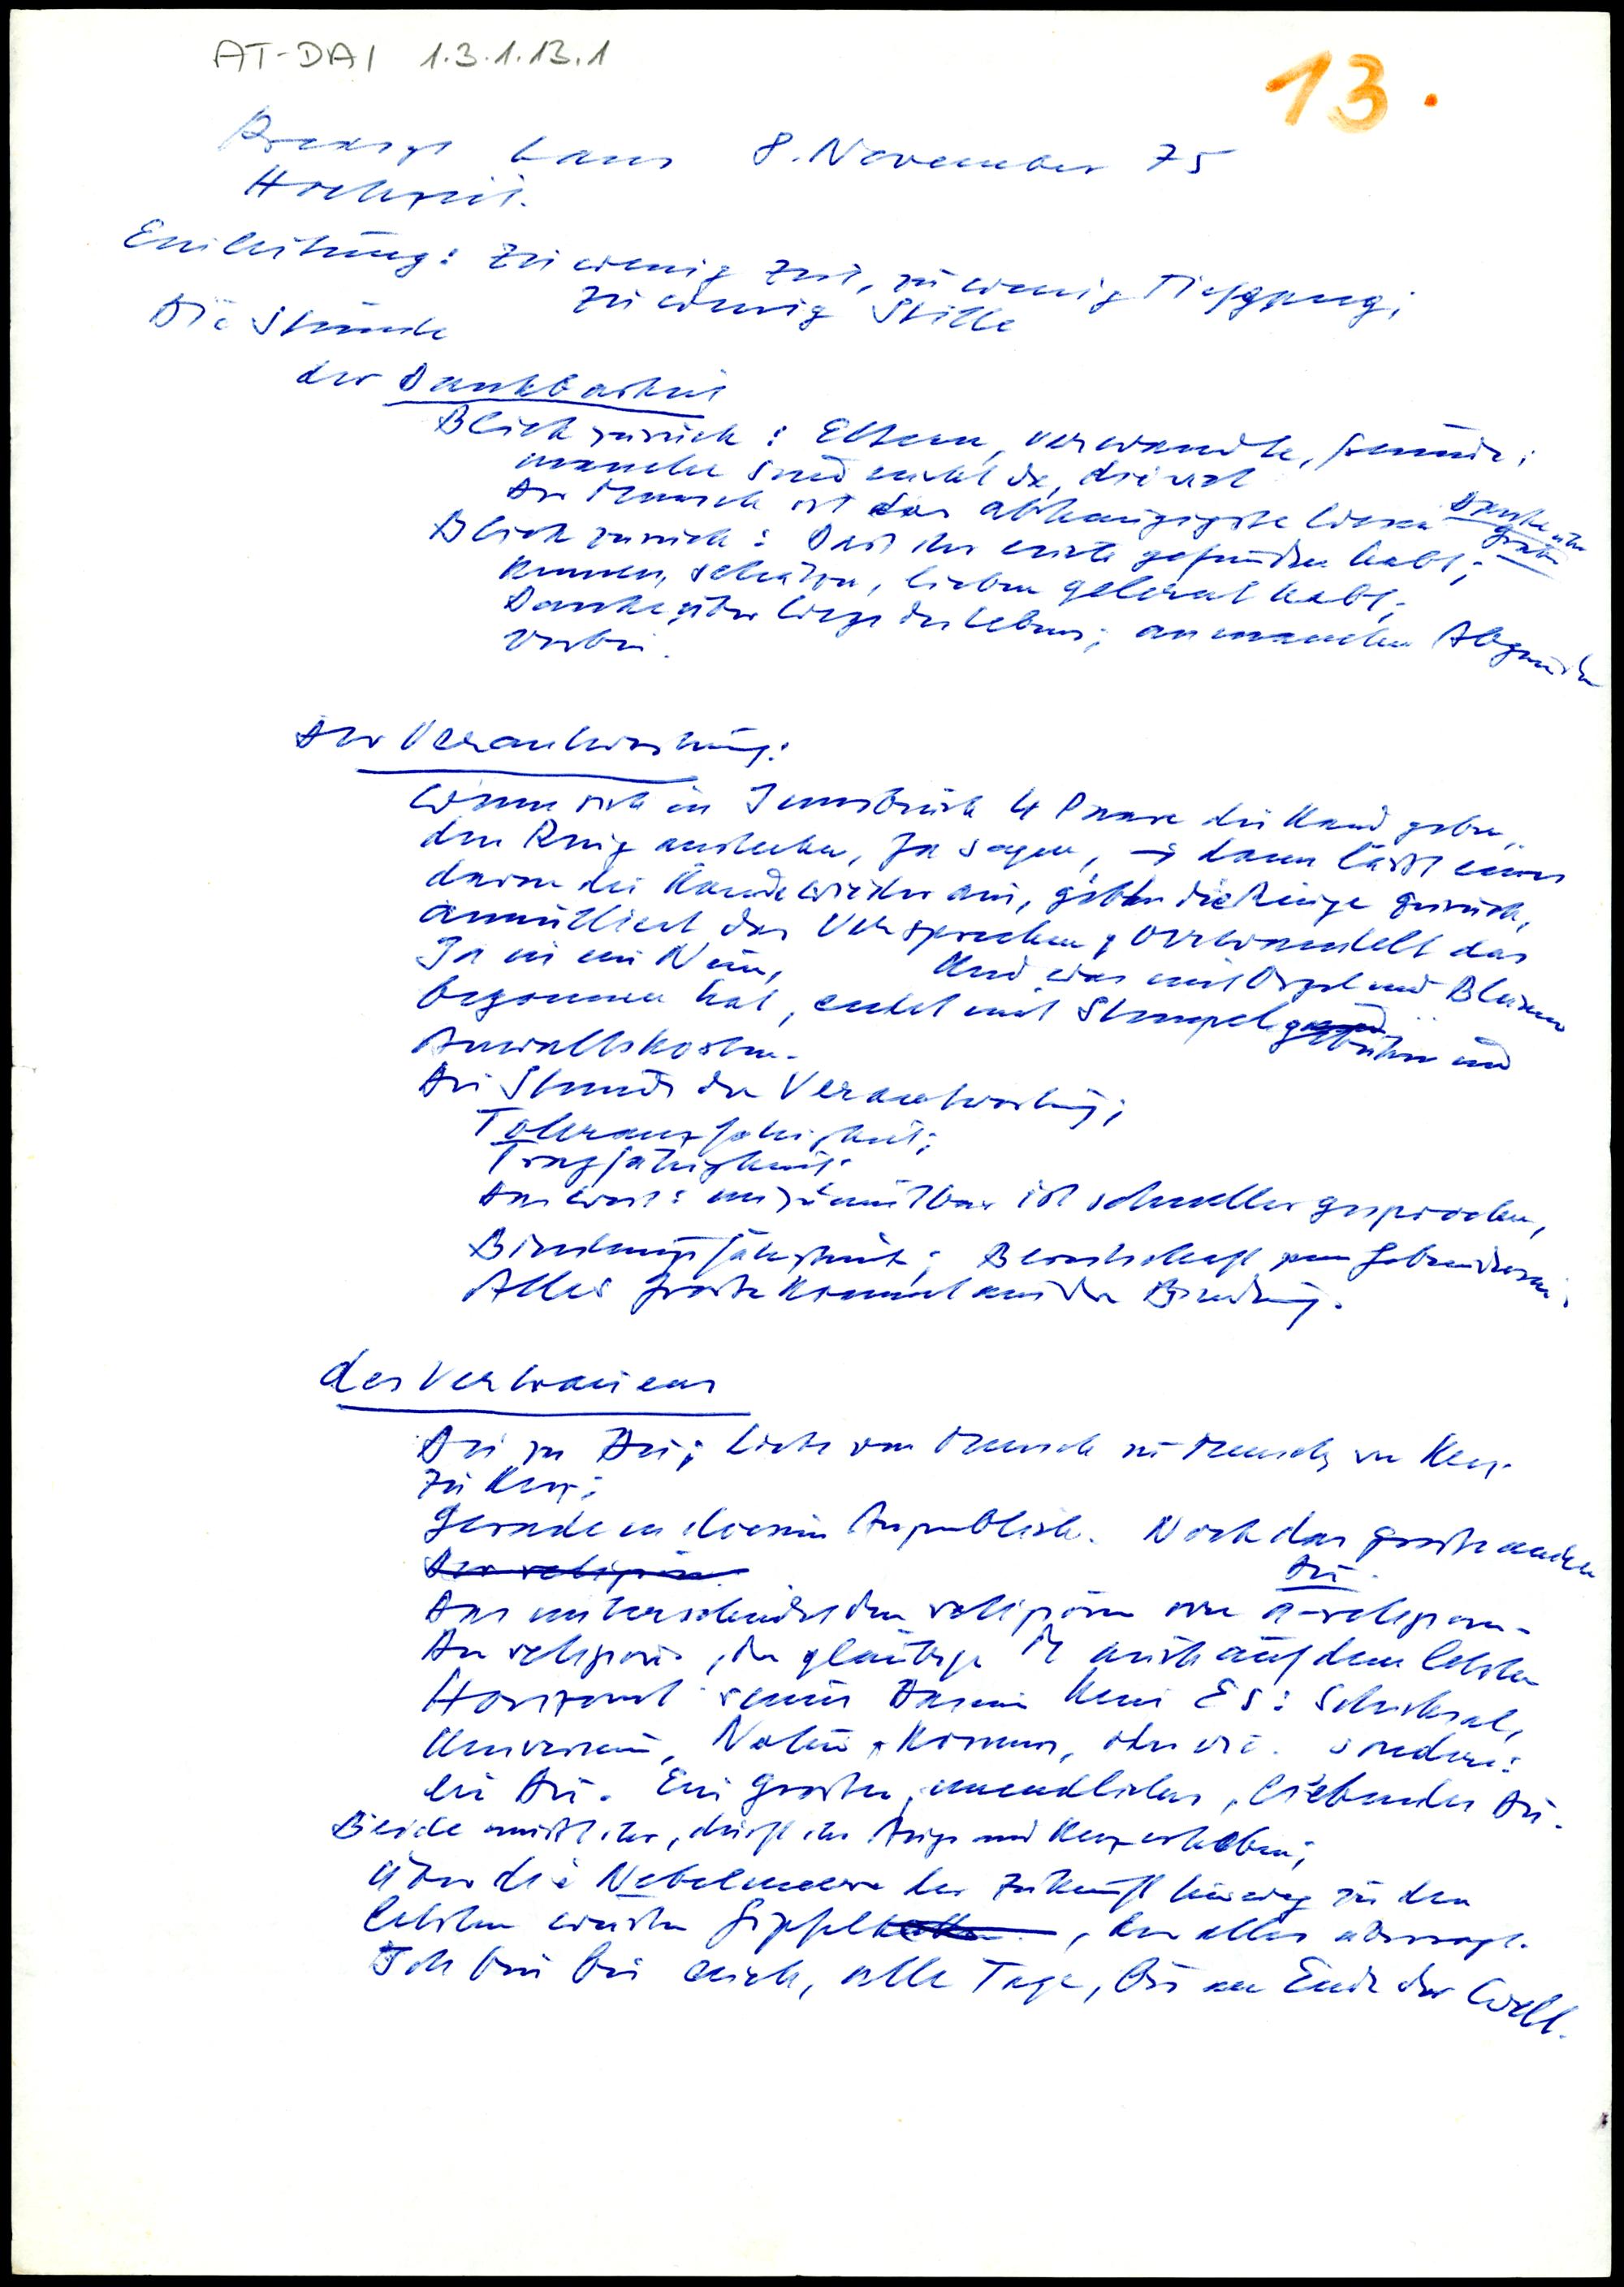 AT-DAI 1.3.1.13.1
13.
Predigt Lans 8. November 75
Hochzeit.
Einleitung: Zu wenig Zeit, zu wenig Tiefgang;
zu wenig Stille
Die Stunde
der Dankbarkeit
Blick zurück: Eltern, Verwandte, Freunde;
manche sind nicht da,
Der Mensch ist das abhängigste Wesen Danke über
Gräber
Blick zurück: Dass ihr euch gefunden habt;
kennen, schätzen, lieben gelernt habt;
Danke über Wege des Lebens; an manchen Abgründen
vorbei.
der Verantwortung:
Wenn sich in Innsbruck 4 Paare die Hand geben,
den Ring anstecken, Ja sagen, → dann lässt eines
davon die Hände wieder aus, geben die Ringe zurück,
annulliert das Versprechen, verwandelt das
Ja in ein Nein, Und was mit Orgel und Blumen
begonnen hat, endet mit Stempelgebühren und
Anwaltskosten.
Die Stunde der Verantwortung;
Toleranzfähigkeit;
Tragfähigkeit.
Das Wort: unzumutbar ist schneller gesprochen,
Bindungsfähigkeit; Bereitschaft zum Gebundensein;
Alles Große kommt aus der Bindung.
des Vertrauens
Du zu Du; Liebe von Mensch zu Mensch, von Herz
zu Herz;
Gerade in diesem Augenblick. Noch das große andere
Du.
Der religiöse
Das unterscheidet den religiösen vom a-religiösen.
Der religiöse, der gläubige M auch auf dem letzten
Horizont seines Daseins kein Es: Schicksal,
Universum, Natur, Kosmos, oder wie. sondern:
ein Du. Ein großes, unendliches, liebendes Du.
Beide müsst ihr, dürft ihr Auge und Herz erheben;
über die Nebelmeere der Zukunft hinweg zu den
letzten weißen Gipfel, der alles überragt.
Ich bin bei euch, alle Tage, bis ans Ende der Welt.